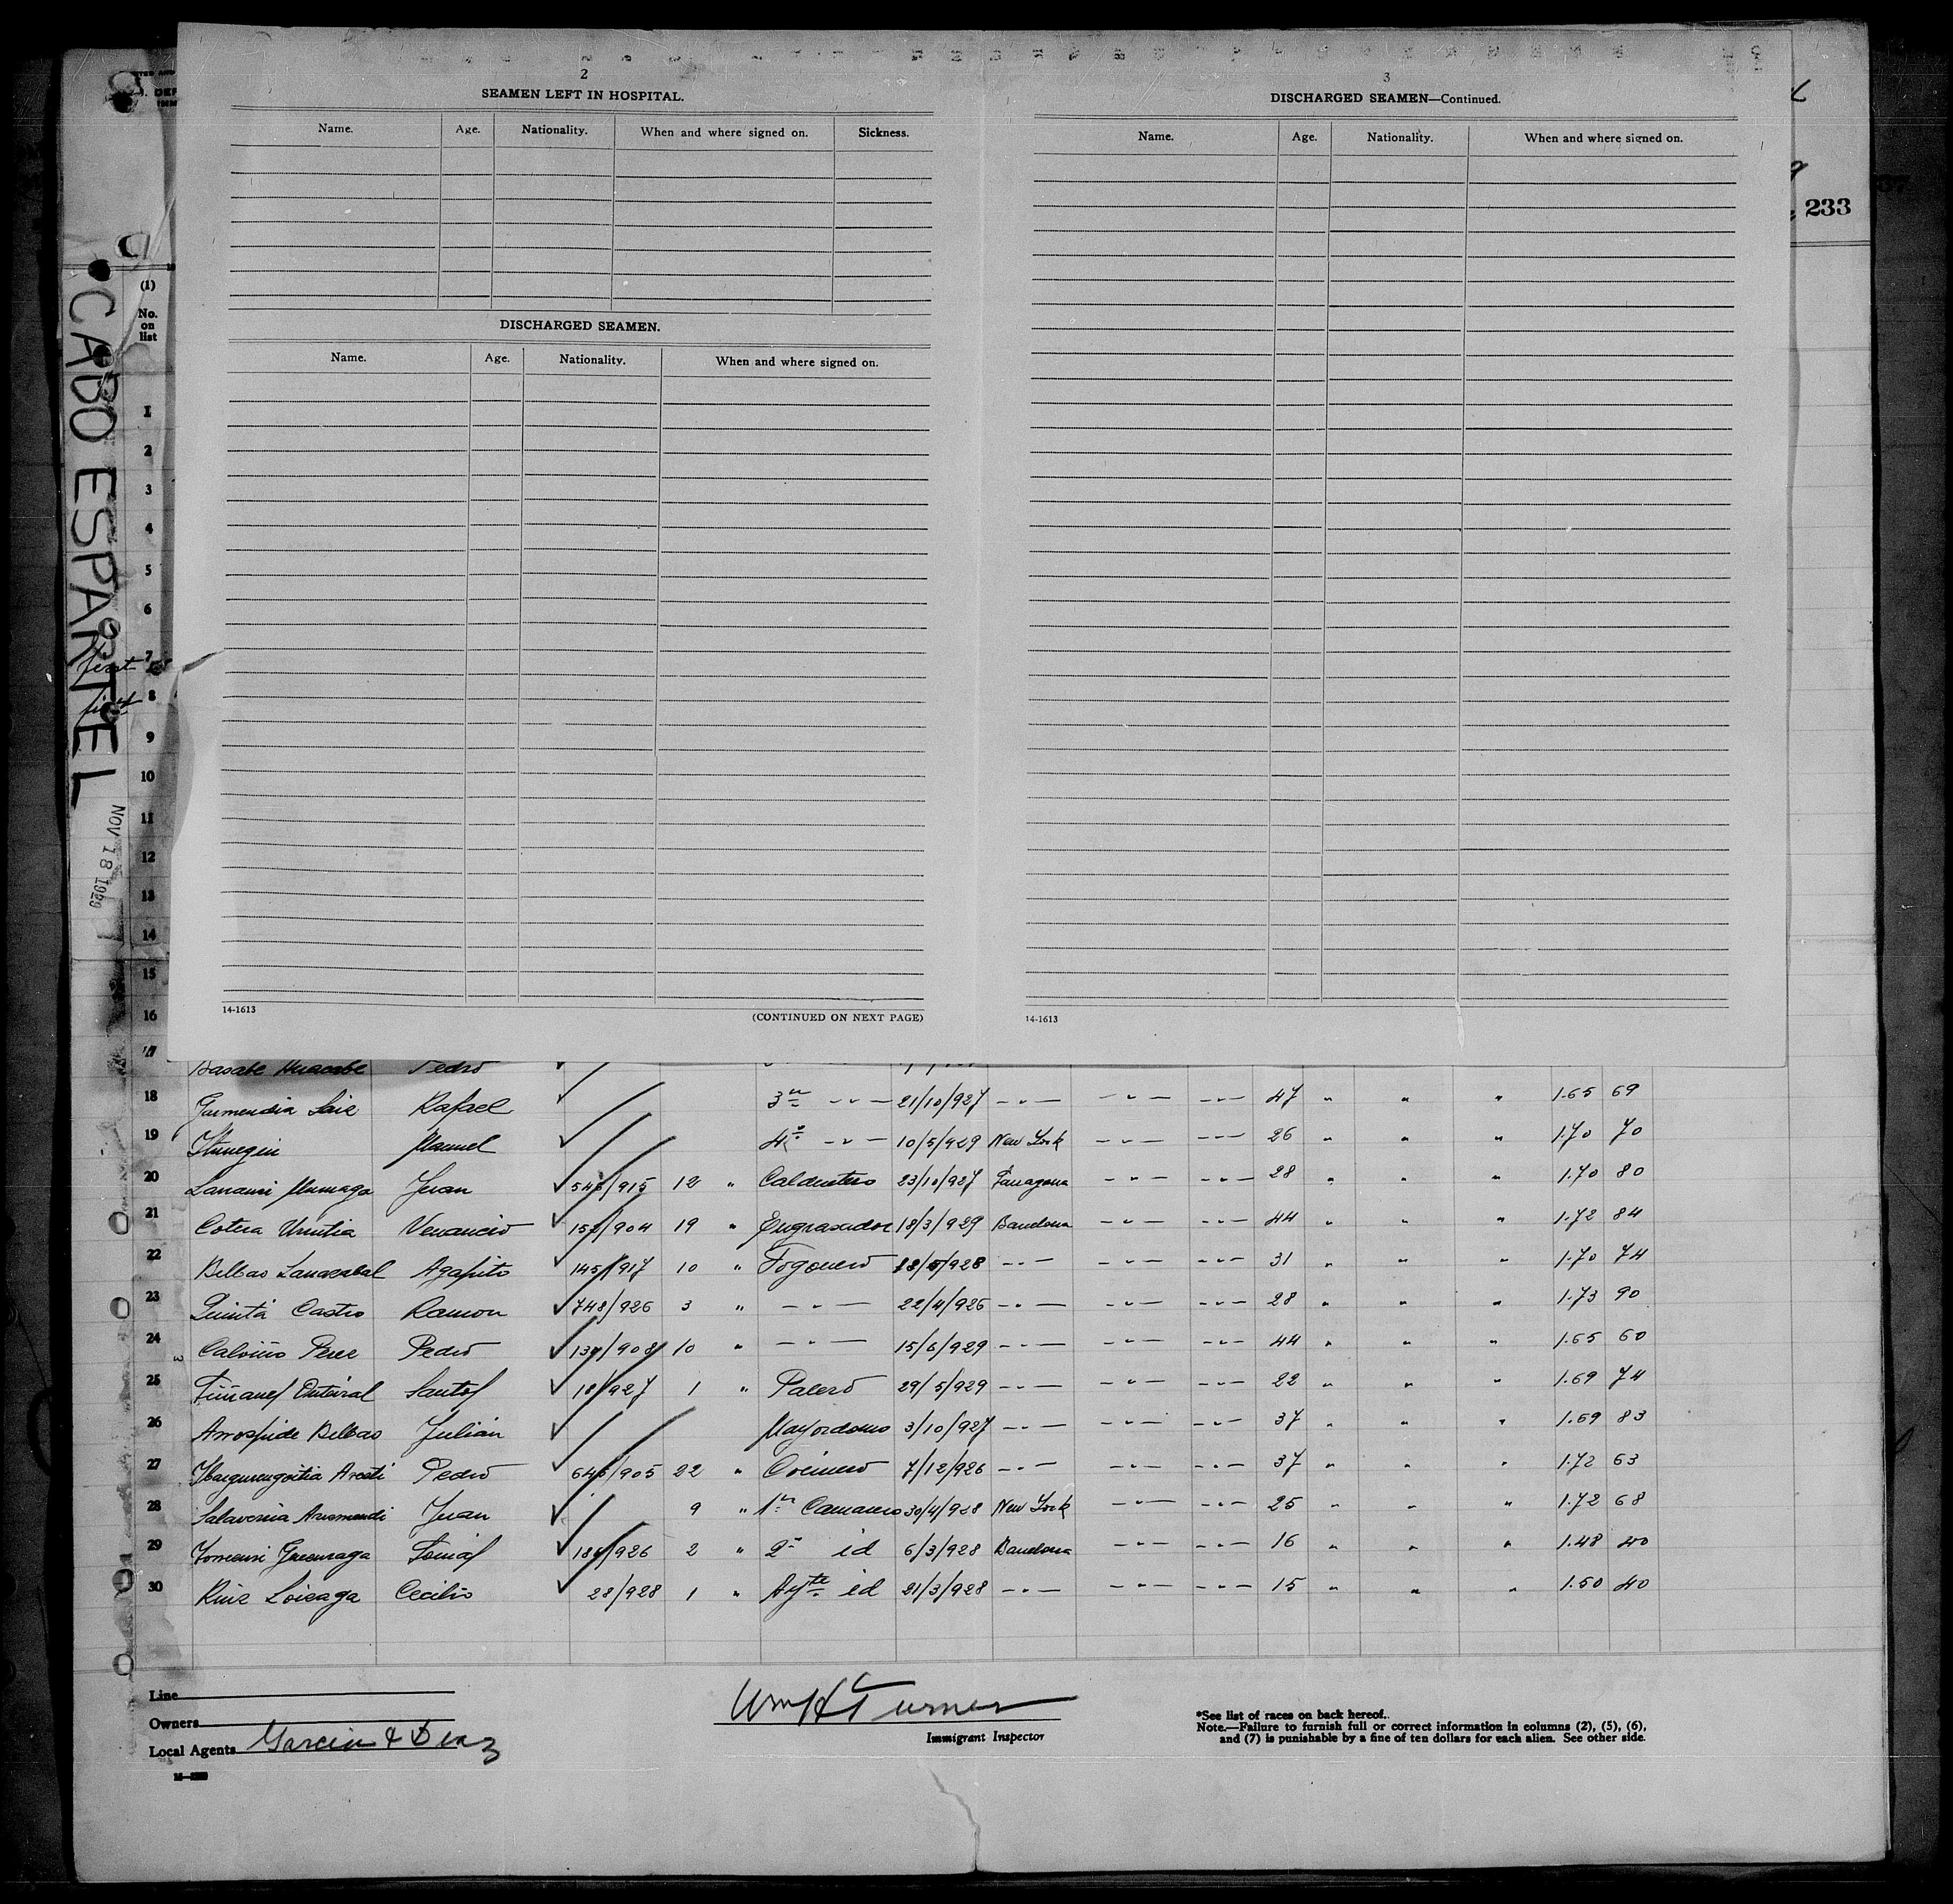 2
SEAMEN LEFT IN HOSPITAL.
Name. Age. Nationality. When and where signed on. Sickness.
DISCHARGED SEAMEN.
Name. Age. Nationality. When and where signed on.
14-1613 (CONTINUED ON NEXT PAGE)
3
DISCHARGED SEAMEN—Continued.
Name. Age. Nationality. When and where signed on.
14-1613
233
CABO ESPARTEL
NOV 18 1929
(1)
No.
on
list
1
2
3
4
5
6
7
first
8
9
10
11
12
13
14
15
16
17 Pedro
18 Rafael ✓ 3º -"- 21/10/927 -"- -"- -"- 47 " " " 1.65 69
19 Manuel ✓ 4º -"- 10/5/929 New York -"- -"- 26 " " " 1.70 70
20 Juan ✓ /915 12 " 23/10/927 Tarragona -"- -"- 28 " " " 1.70 80
21 Cotera Urrutia Venancio ✓ /904 19 " Engrasador 18/3/929 Barcelona -"- -"- 44 " " " 1.72 84
22 Bilbao Agapito ✓ 145/917 10 " Fogonero /928 -"- -"- -"- 31 " " " 1.70 74
23 Castro Ramon ✓ 748/926 3 " -"- 22/4/926 -"- -"- -"- 28 " " " 1.73 90
24 Calviño Perez Pedro ✓ /908 10 " -"- 15/6/929 -"- -"- -"- 44 " " " 1.65 60
25 Santos ✓ 18/927 1 " Palero 29/5/929 -"- -"- -"- 22 " " " 1.69 74
26 Arrospide Bilbao Julián ✓ Mayordomo 3/10/927 -"- -"- -"- 37 " " " 1.69 83
27 Ybargurengoitia Pedro ✓ /905 22 " Cocinero 7/12/926 -"- -"- -"- 37 " " " 1.72 63
28 Salaverria Juan ✓ 9 " 1er Camarero 30/4/928 New York -"- -"- 25 " " " 1.72 68
29 Tomás ✓ /926 2 " 2º id 6/3/928 Barcelona -"- -"- 16 " " " 1.48 40
30 Ruiz Loizaga Cecilio ✓ 28/928 1 " Ayte id 21/3/928 -"- -"- -"- 15 " " " 1.50 40
Line
Owners
Local Agents Garcia & Diaz
Wm H Turner
Immigrant Inspector
*See list of races on back hereof.
Note.—Failure to furnish full or correct information in columns (2), (5), (6),
and (7) is punishable by a fine of ten dollars for each alien. See other side.